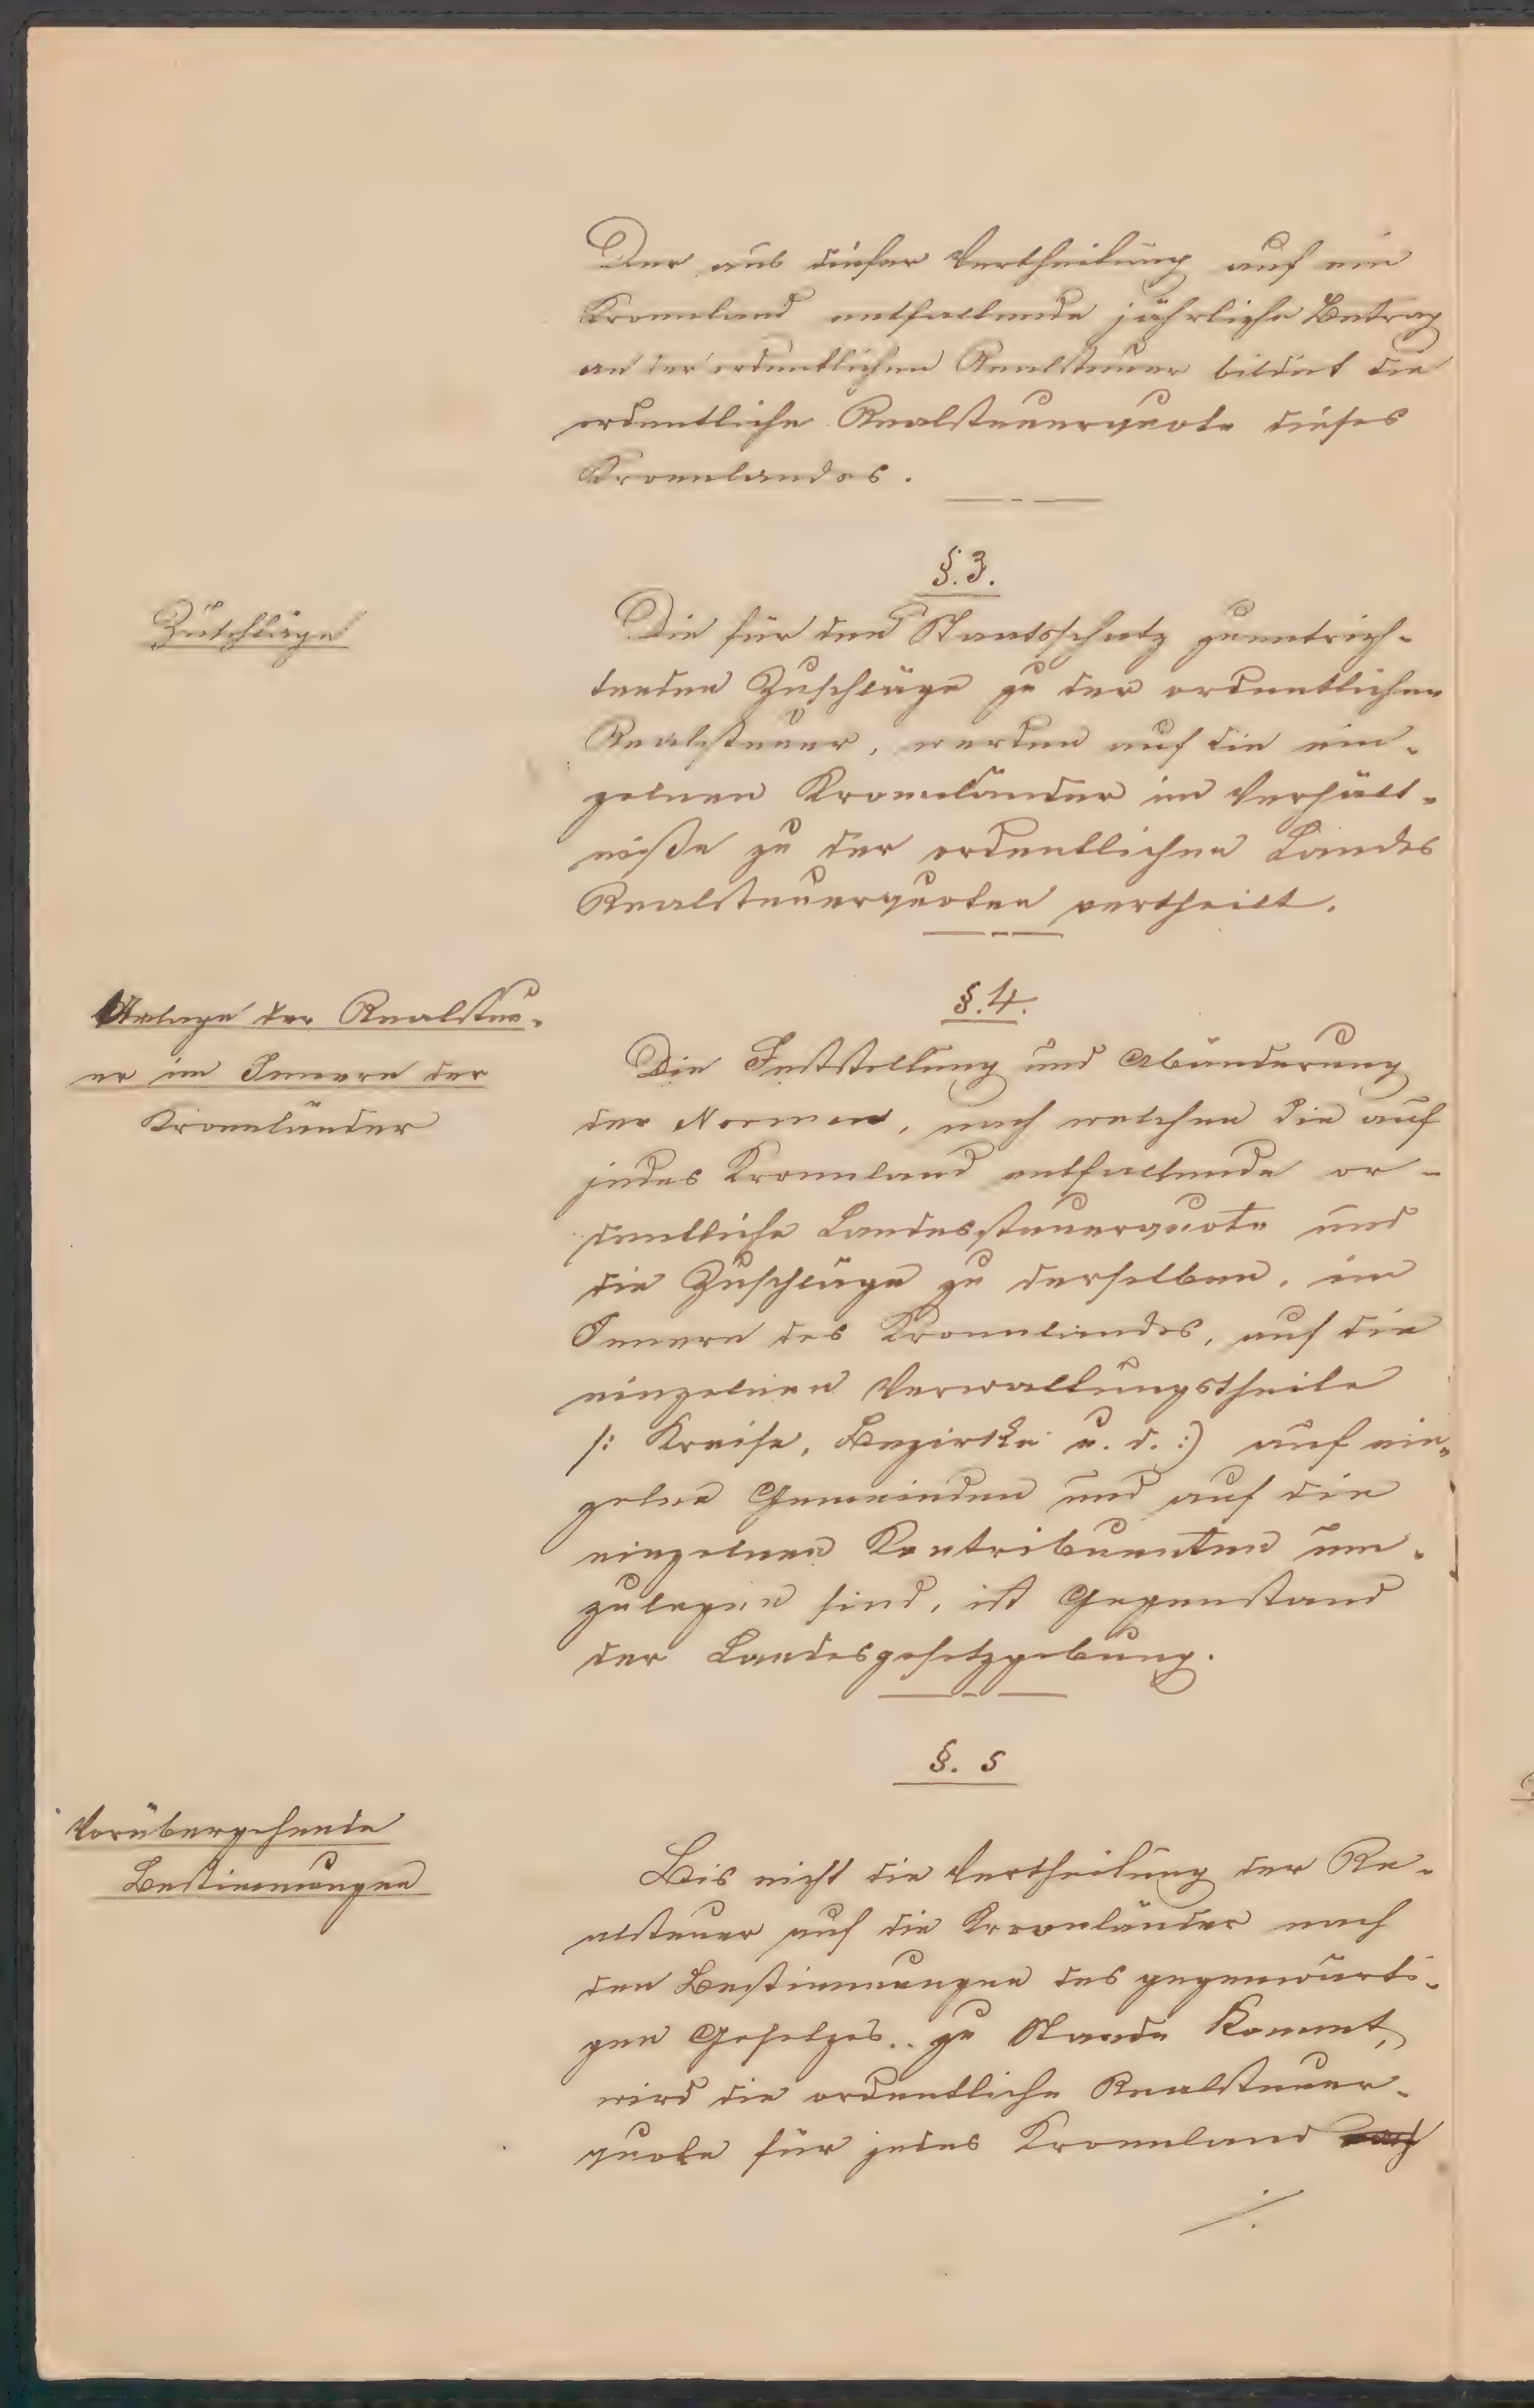 Der aus dieser Vertheilung auf ein
Kronnland entfallende jährliche Betrag
an der ordentlichen Realsteuer bildet die
ordentliche Realsteuerquote dieses
Kronnlandes.
§.3.
Zuschläge
Die für den Staatsschatz zuentrich-
tenden Zuschläge zu der ordentlichen
Realsteuer, werden auf die ein-
zelnen Kronnländer im Verhält-
niße zu der ordentlichen Landes
Realsteuerquoten vertheilt.
§.4.
Umlage der Realsteu-
er im Innern der
Kronnländer
Die Feststellung und Abänderung
der Normen, nach welchen die auf
jedes Kronnland entfallende or-
dentliche Landessteuerquote und
die Zuschläge zu derselben, im
Innern des Kronnlandes, auf die
einzelnen Verwaltungstheile
/: Kreise, Bezirke u. d. :) auf ein-
zelne Gemeinden und auf die
einzelnen Kontribuenten um-
zulegen sind, ist Gegenstand
der Landesgesetzgebung.
§. 5
Vorübergehende
Bestimmungen
Bis nicht die Vertheilung der Re-
alsteuer auf die Kronnländer nach
den Bestimmungen des gegenwärti-
gen Gesetzes.. zu Stande kommt,
wird die ordentliche Realsteuer-
quote für jedes Kronnland
./.